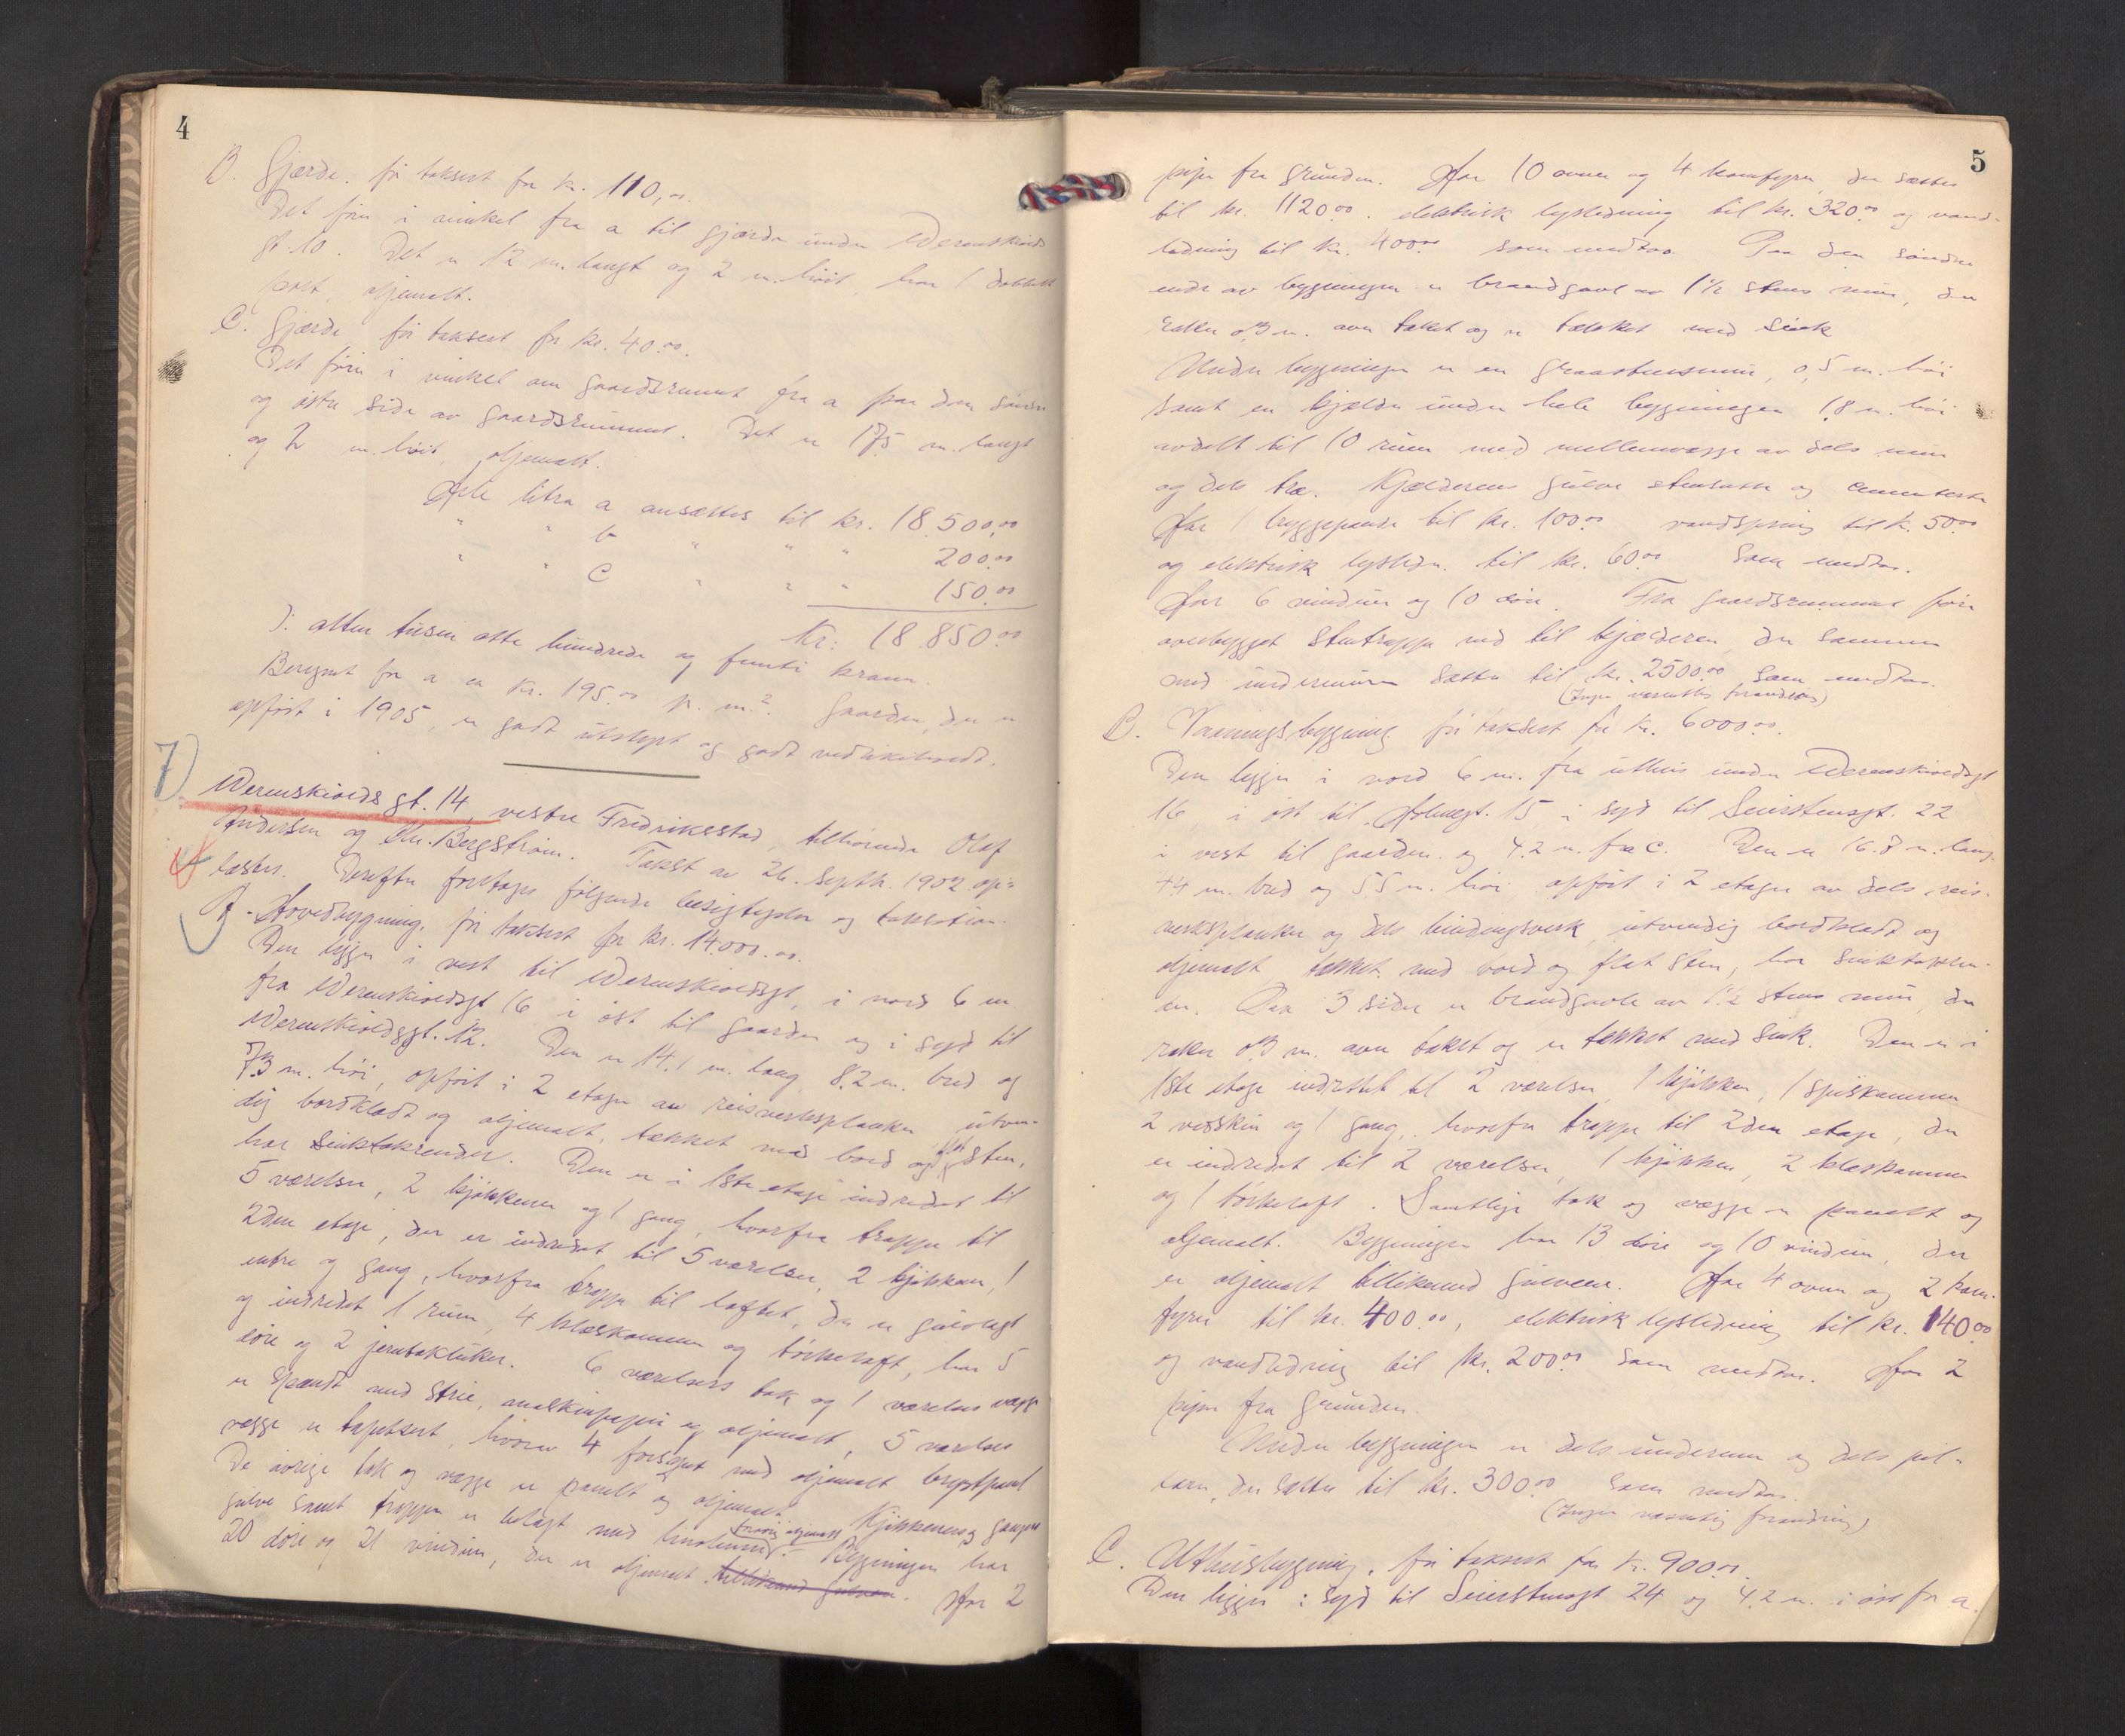 4
B. Gjærde. før taksert for kr. 110,00.
Det fører i vinkel fra a til gjærde under Werenskiolds
gt. 10. Det er 12 m. langt og 2 m. høit, har 1 dobbelt
port, oljemalt.
C. Gjærde før taksert for kr. 40.00.
Det fører i vinkel om gaardsrummet fra a paa den søndre
og østre side av gaardsrummet. Det er 17,5 m. langt
og 2 m. høit, oljemalt.
Hele litra a ansættes til kr. 18.500,00
" " b " " " 200.00
" " C " " " 150.00
Kr: 18.850.00
): atten tusen otte hundrede og femti kroner.
Beregnet for a er kr. 195.00 pr. m.². Gaarden, der er
opført i 1905, er godt utstyrt og godt vedlikeholdt.
7)
Werenskiolds gt. 14, vestre Fredriksstad, tilhørende Olaf
Andersen og Chr. Bergstrøm. Takst av 26. Septbr. 1902 op-
læstes. Derefter foretages følgende besigtigelse og taksation:
A. Hovedbygning, før taksert for kr. 14.000.00.
Den ligger i vest til Werenskioldsgt, i nord 6 m
fra Werenskioldsgt 16 i øst til gaarden og i syd til
Werenskioldsgt. 12. Den er 14,1 m. lang 8.2 m. bred og
7,3 m. høi, opført i 2 etager av reisverksplanker utven-
dig bordklædt og oljemalt, tækket med bord og flat sten,
har sinktakrender. Den er i 1ste etage indredet til
5 værelser, 2 kjøkkener og 1 gang, hvorfra trappe til
2den etage, der er indredet til 5 værelser, 2 kjøkken, 1
entre og gang, hvorfra trappe til loftet, der er gulvlagt
og indredet 1 rum, 4 klæskammer og tørkeloft, har 5
døre og 2 jerntakluker. 6 værelsers tak og 1 værelses vægge
er spændt med strie, maskinpapir og oljemalt, 5 værelses
vægge er tapetsert, hvorav 4 forsynt med oljemalt brystpanel
De øvrige tak og vægge er panelt og oljemalt. Kjøkkenens og gangens
gulve samt trapper er belagt med linoleum, forøvrig oljemalt. Bygningen har
20 døre og 21 vinduer, der er oljemalt tillikemed gulvene. Har 2
5
piper fra grunden. Har 10 ovner og 4 komfyrer, der sættes
til kr. 1120.00. elektrisk lysledning til kr. 320.00 og vand-
ledning til kr. 400.00 som medtas. Paa den søndre
ende av bygningen er brandgavl av 1½ stens mur, der
rækker 0,3 m. over taket og er tækket med sink
Under bygningen er en graastensmur, 0,5 m. høi
samt en kjælder under hele bygningen 1,8 m. høi
avdelt til 10 rum med mellemvægge av dels mur
og dels træ. Kjælderens gulve stensatte og cementerte
Har 1 bryggepande til kr. 100.00 vandspring til kr. 50.00
og elektrisk lysledn. til kr. 60.00 som medtas.
Har 6 vinduer og 10 døre. Fra gaardsrummet fører
overbygget stentrappe ned til kjælderen, der sammen
med undermuren sættes til kr. 2500.00 som medtas.
(Ingen væsentlig forandring)
B. Vaaningsbygning før taksert for kr. 6000.00.
Den ligger i nord 6 m. fra uthus under Werenskioldsgt
16, i øst til Holmegt. 15 i syd til Seierstensgt. 22
i vest til gaarden og 4.2 m. fra C. Den er 16.8 m. lang
4.4 m. bred og 5.5 m. høi opført i 2 etager av dels reis-
verksplanker og dels bindingsverk utvendig bordklædt og
oljemalt tækket med bord og flat sten, har sinktakren-
der. Paa 3 sider er brandgavle av 1½ stens mur, der
rækker 0.3 m. over taket og er tækket med sink. Den er i
1ste etage indredet til 2 værelser, 1 kjøkken, 1 spiskammer
2 vedskur og 1 gang, hvorfra trappe til 2den etage, der
er indredet til 2 værelser, 1 kjøkken, 2 klæskammer
og 1 tørkeloft. Samtlige tak og vægge er panelt og
oljemalt. Bygningen har 13 døre og 10 vinduer, der
er oljemalt tillikemed gulvene. Har 4 ovner og 2 kom-
fyrer til kr. 400.00, elektrisk lysledning til kr. 140.00
og vandledning til kr. 200.00 som medtas. Har 2
piper fra grunden.
Under bygningen er dels undermur og dels pil-
larer, der sættes til kr. 300.00 som medtas.
(Ingen væsentlig forandring)
C. Uthusbygning, før taksert for kr. 900.00.
Den ligger i syd til Seierstensgt 24 og 4.2 m. i øst fra a.